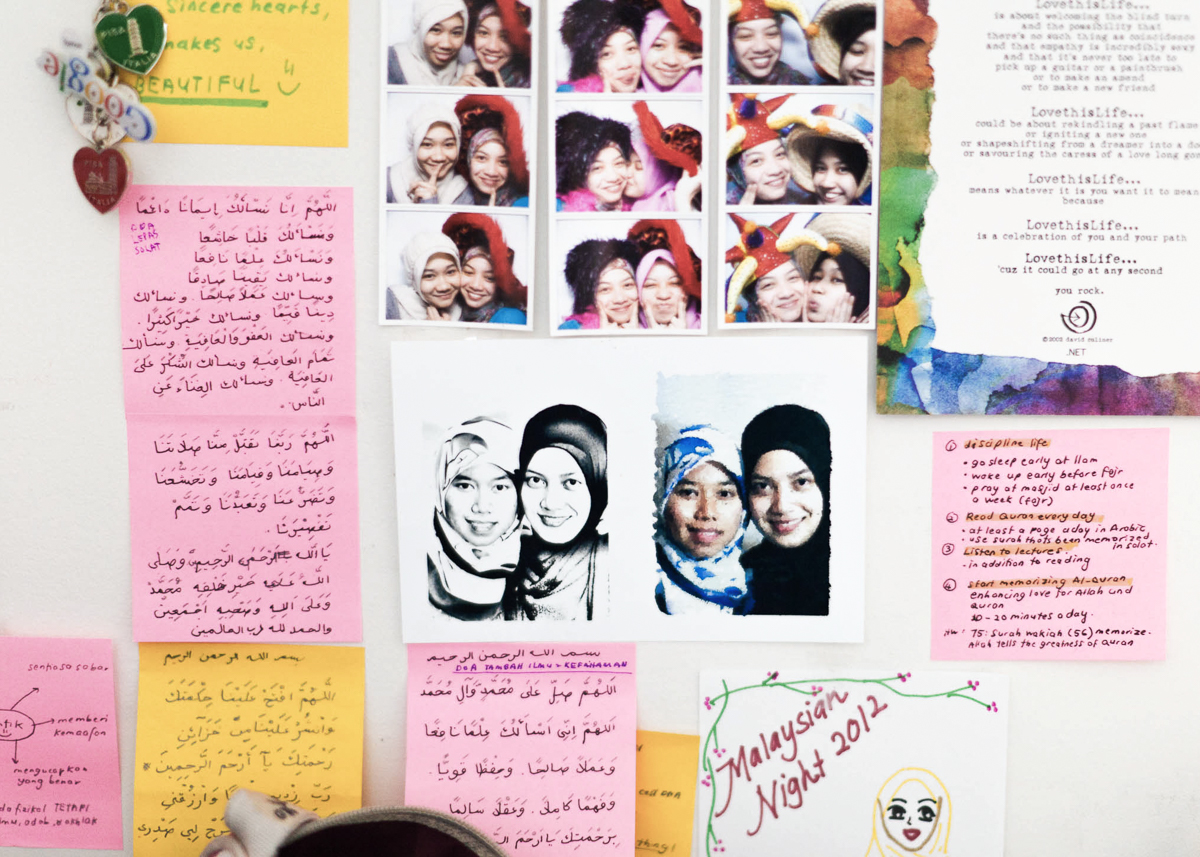 Sincere hearts,
makes us,
BEAUTIFUL
PISA
ITALIA
Google
PISA
ITALIA
LovethisLife...
is about welcoming the blind turn
and the possibility that
there's no such thing as coincidence
and that empathy is incredibly sexy
and that it's never too late to
pick up a guitar or a paintbrush
or to make an amend
or to make a new friend
LovethisLife...
could be about rekindling a past flame
or igniting a new one
or shapeshifting from a dreamer into a
or savouring the caress of a love long
LovethisLife...
means whatever it is you want it to mean
because
LovethisLife...
is a celebration of you and your path
LovethisLife...
'cuz it could go at any second
you rock.
.NET
اللهم إنا نسألك إيمانا دائما
DOA
LEPAS
SOLAT
ونسألك قلبا خاشعا
ونسألك علما نافعا
ونسألك يقينا صادقا
ونسألك عملا صالحا. ونسألك
دينا قيما ونسألك خيرا كثيرا.
ونسألك العفو والعافية. ونسألك
تمام العافية ونسألك الشكر على
العافية. ونسألك الغناء عن
الناس.
اللهم ربنا تقبل منا صلاتنا
وصيامنا وقيامنا وتخشعنا
وتضرعنا وتعبدنا وتمم
تقصيرنا.
يا الله الرحمن الرحيم وصلى
الله على خير خلقه محمد
وعلى آله وصحبه أجمعين
والحمد لله رب العالمين
① discipline life
• go sleep early at 11am
• wake up early before fajr
• pray at masjid at least once
a week (fajr)
② Read Quran every day
• at least a page a day in Arabic
• use surah that's been memorized
in solat.
③ Listen to lectures.
- in addition to reading
④ start memorizing Al-Quran
enhancing love for Allah and
Quran
10 - 20 minutes a day.
75: Surah wakiah (56) memorize.
Allah tells the greatness of Quran
sentiasa sabar
memberi
kemaafan
mengucapkan
yang benar
fizikal TETAPI
بسم الله الرحمن الرحيم
اللهم افتح علينا حكمتك
وانشر علينا من خزائن
رحمتك يا أرحم الراحمين
بسم الله الرحمن الرحيم
DOA TAMBAH ILMU & KEFAHAMAN
اللهم صل على محمد وآل محمد
اللهم إني أسألك علما نافعا
وعملا صالحا. وحفظا قويا.
وفهما كاملا. وعقلا سالما
برحمتك يا أرحم
Malaysian
Night 2012